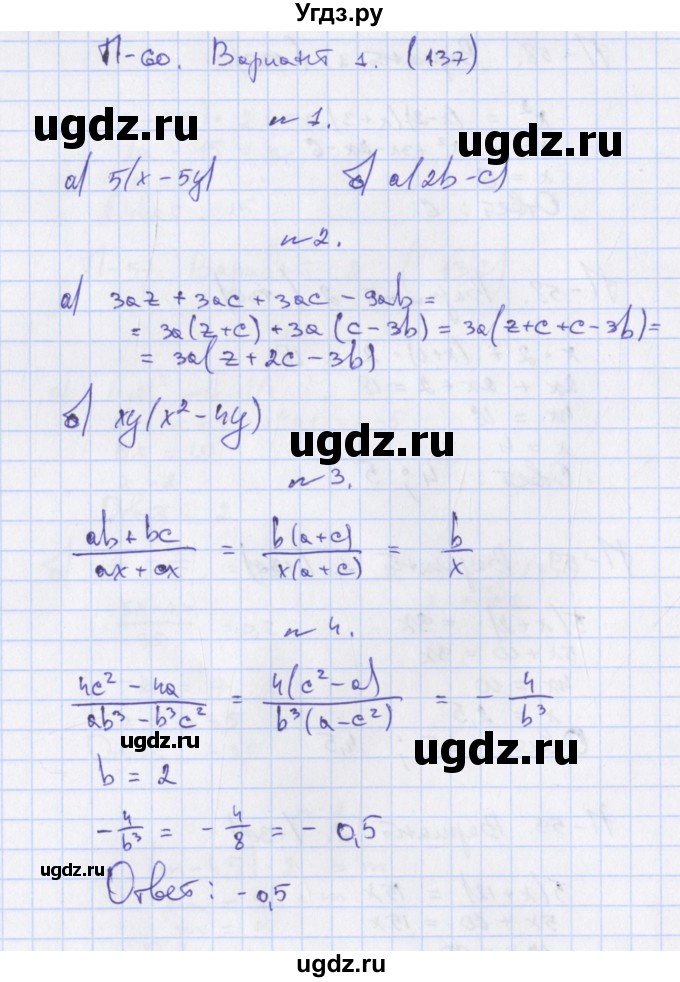 Угдз.ру
П-60. Вариант 1. (137)
ugdz.ru
ugdz.ru
n 1.
а) 5(x - 5y) б) a(2b-c)
n 2.
а) 3az + 3ac + 3ac - 9ab =
= 3a(z+c) + 3a(c-3b) = 3a(z+c+c-3b) =
= 3a(z + 2c - 3b)
б) xy(x² - 4y)
ugdz.ru
n 3.
(ab + bc)/(ax + cx) = b(a+c)/x(a+c) = b/x
n 4.
(4c² - 4a)/(ab³ - b³c²) = 4(c² - a)/b³(a - c²) = - 4/b³
ugdz.ru
ugdz.ru
b = 2
- 4/b³ = - 4/8 = - 0,5
ugdz.ru
ugdz.ru
Ответ: -0,5
ugdz.ru